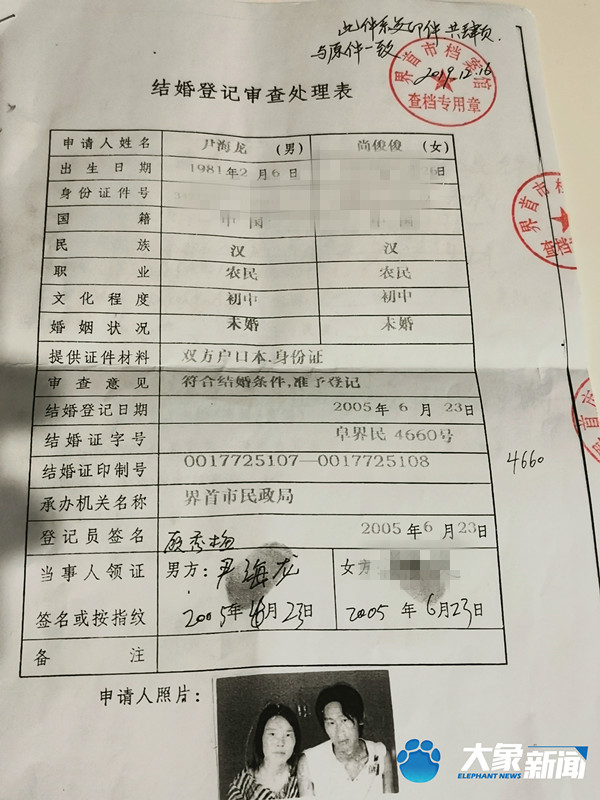 此件系复印件共肆页.
与原件一致
2019.12.16
界首市档案馆
查档专用章
结婚登记审查处理表
申请人姓名 尹海龙 (男) 尚俊俊 (女)
出生日期 1981年2月6日 6日
身份证件号
国籍 中国 中国
民族 汉 汉
职业 农民 农民
文化程度 初中 初中
婚姻状况 未婚 未婚
提供证件材料 双方户口本.身份证
审查意见 符合结婚条件,准予登记
结婚登记日期 2005年6月23日
结婚证字号 阜界民4660号
4660
结婚证印制号 0017725107—0017725108
承办机关名称 界首市民政局
登记员签名 2005年6月23日
当事人领证 男方:尹海龙 女方
签名或按指纹 2005年6月23日 2005年6月23日
备注
申请人照片:
界首市档
查档专用
大象新闻
ELEPHANT NEWS